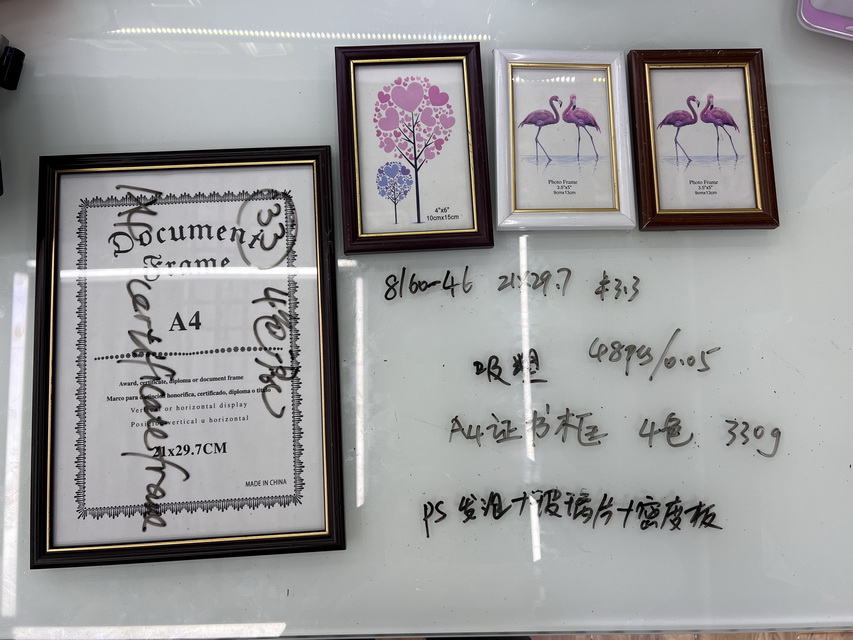 Document
Frame
A4
Award, certificate, diploma or document frame
Marco para distinción honorífica, certificado, diploma o título
Vertical or horizontal display
Posición vertical u horizontal
21x29.7CM
MADE IN CHINA
33
4色/PC
A4 certificate frame
4"x6"
10cmx15cm
Photo Frame
3.5"x5"
9cmx13cm
Photo Frame
3.5"x5"
9cmx13cm
8160-46 21x29.7 ¥3.3
吸塑 48PCS/0.05
A4证书框 4色 330g
PS发泡+玻璃片+密度板